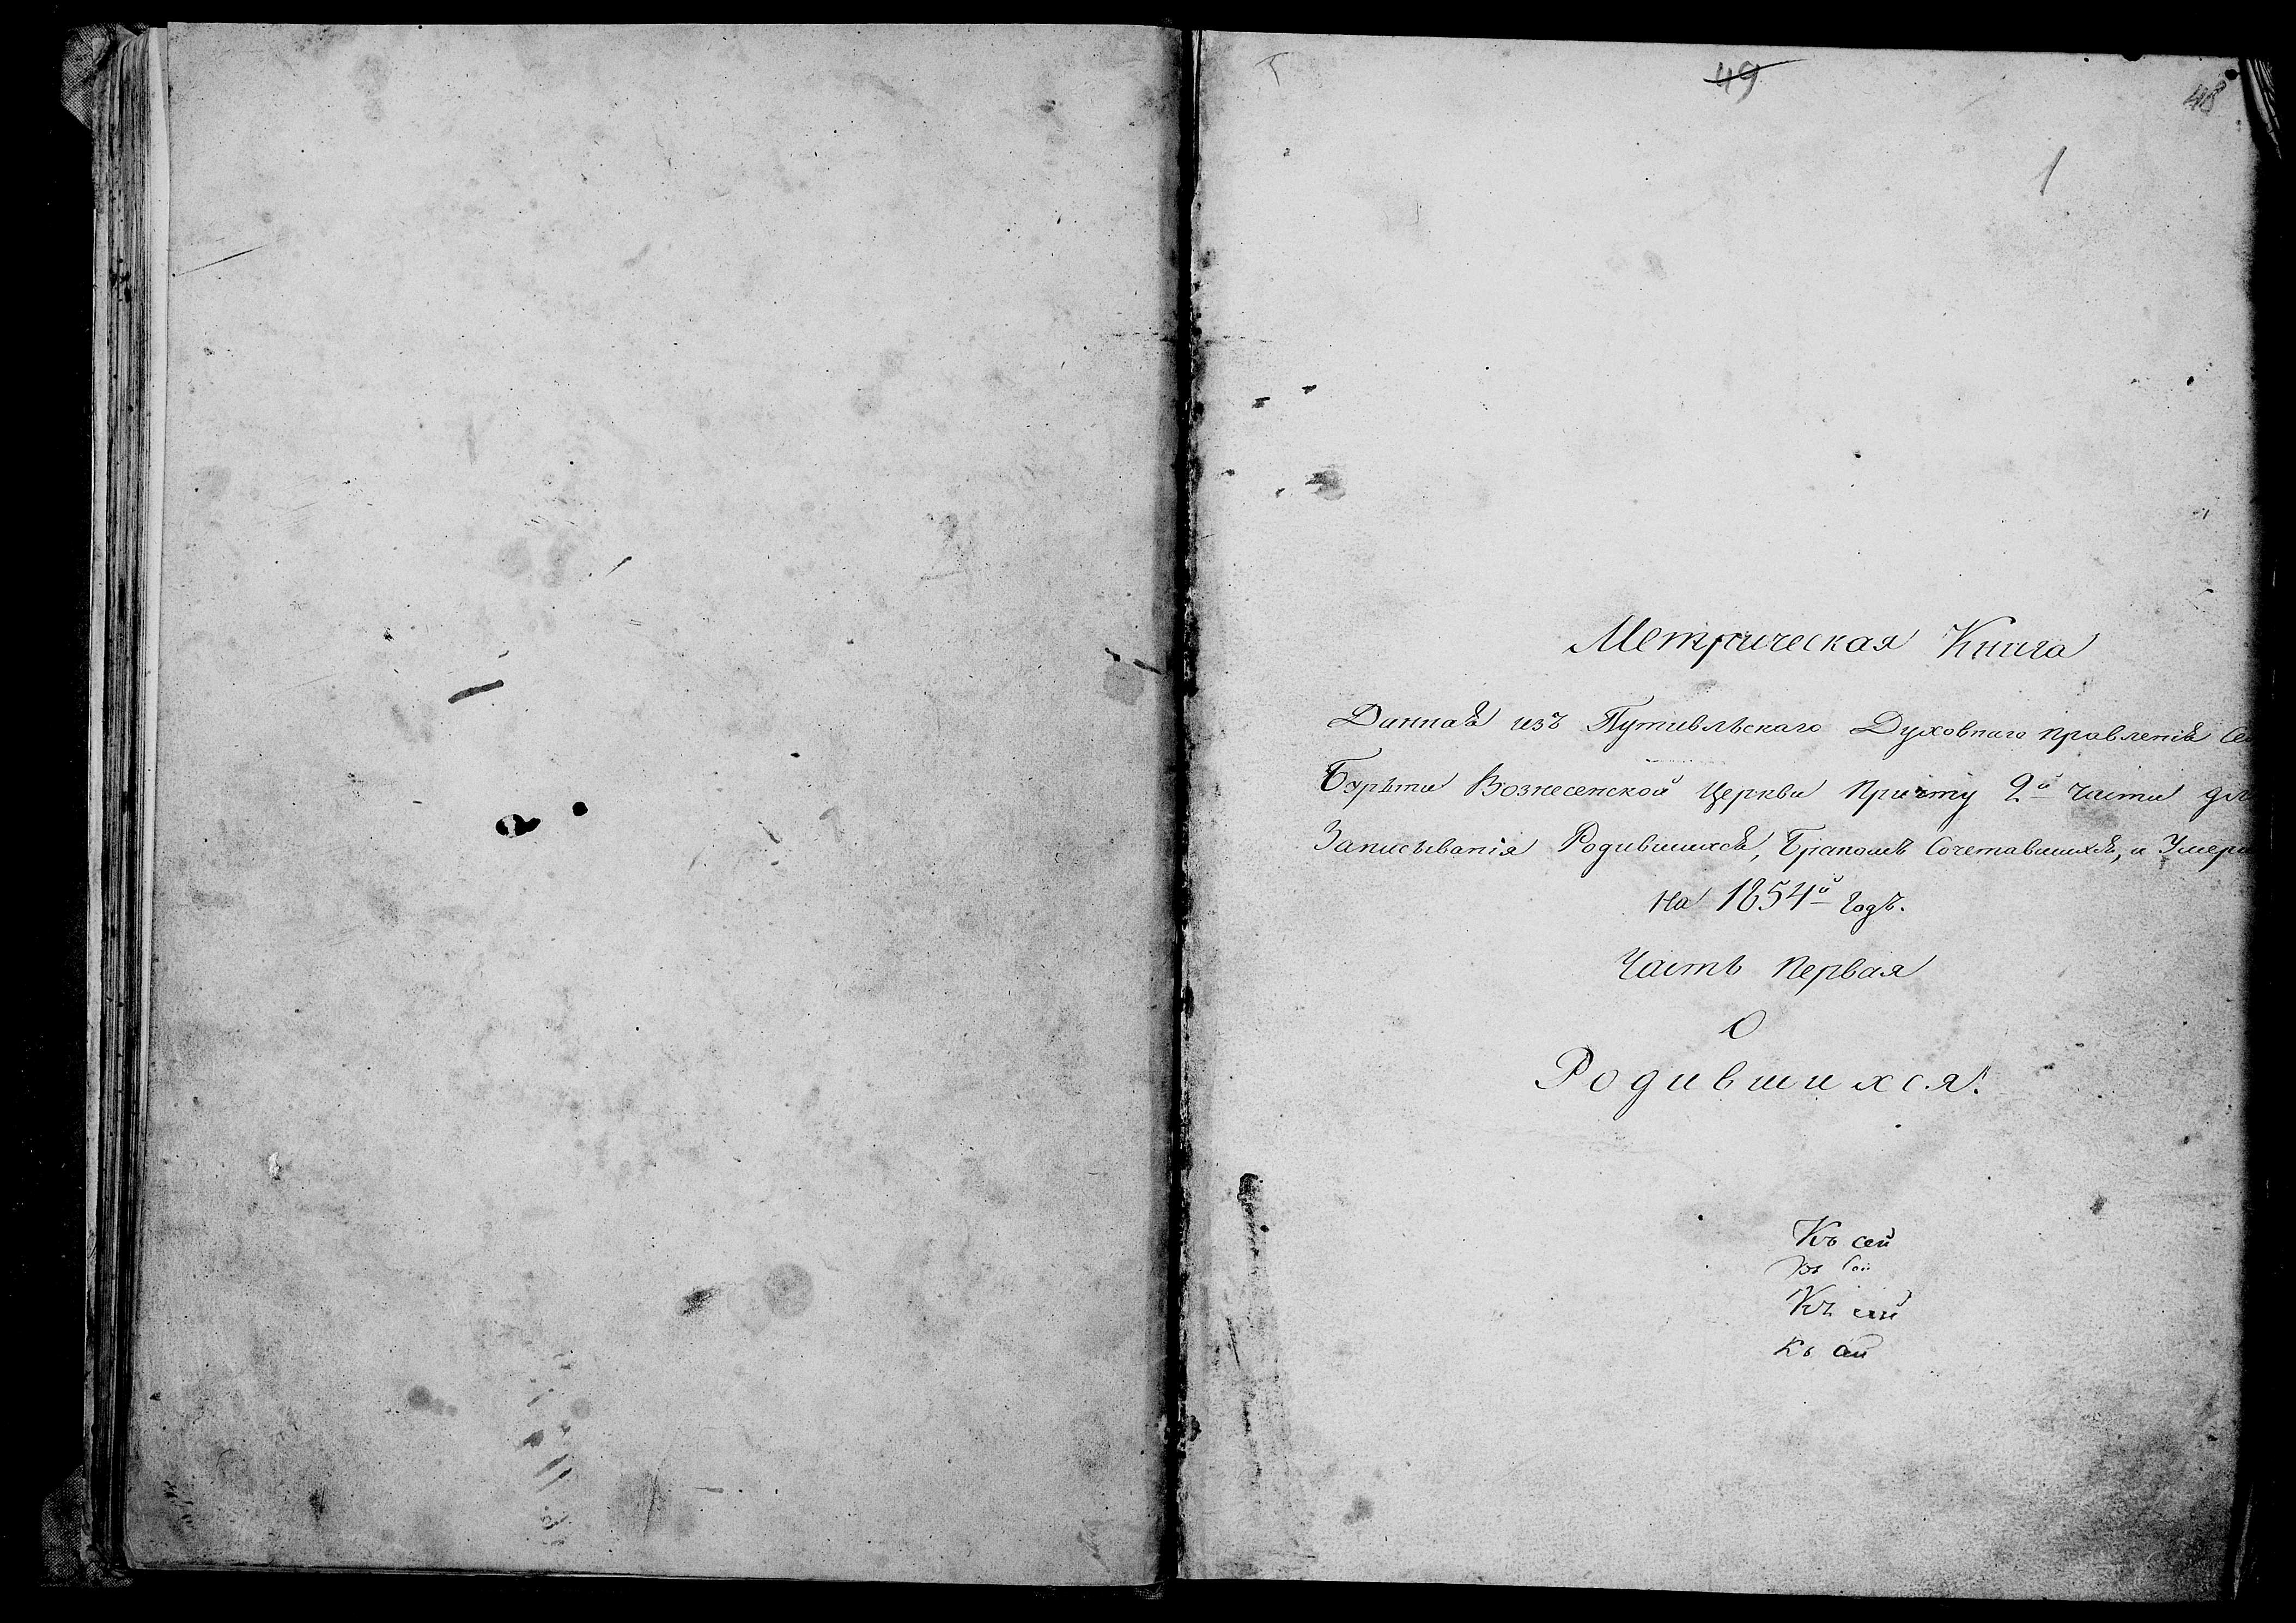 49
48
1
Метрическая Книга
Данная изъ Путивльскаго Духовнаго правленія Се
Вознесенской Церкви Причту 2й части дл
Записыванія Родившихся, Бракомъ Сочетавшихся, и Умер
на 1854й годъ.
Часть Первая
О
Родившихся.
Къ сей
Къ сей
Къ сей
Къ сей